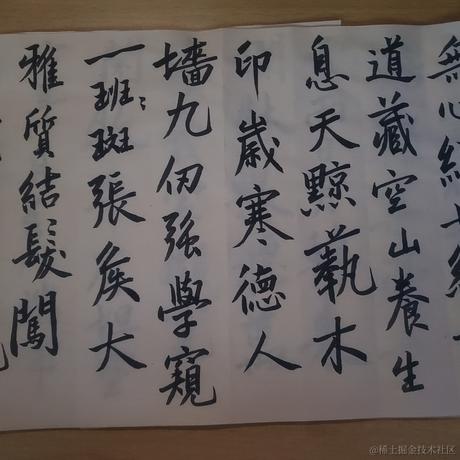 無心
道藏空山養生
息天黥蓺木
印歲寒德人
墻九仞強學窺
一班斑張侯大
雅質結髮闖
@稀土掘金技术社区